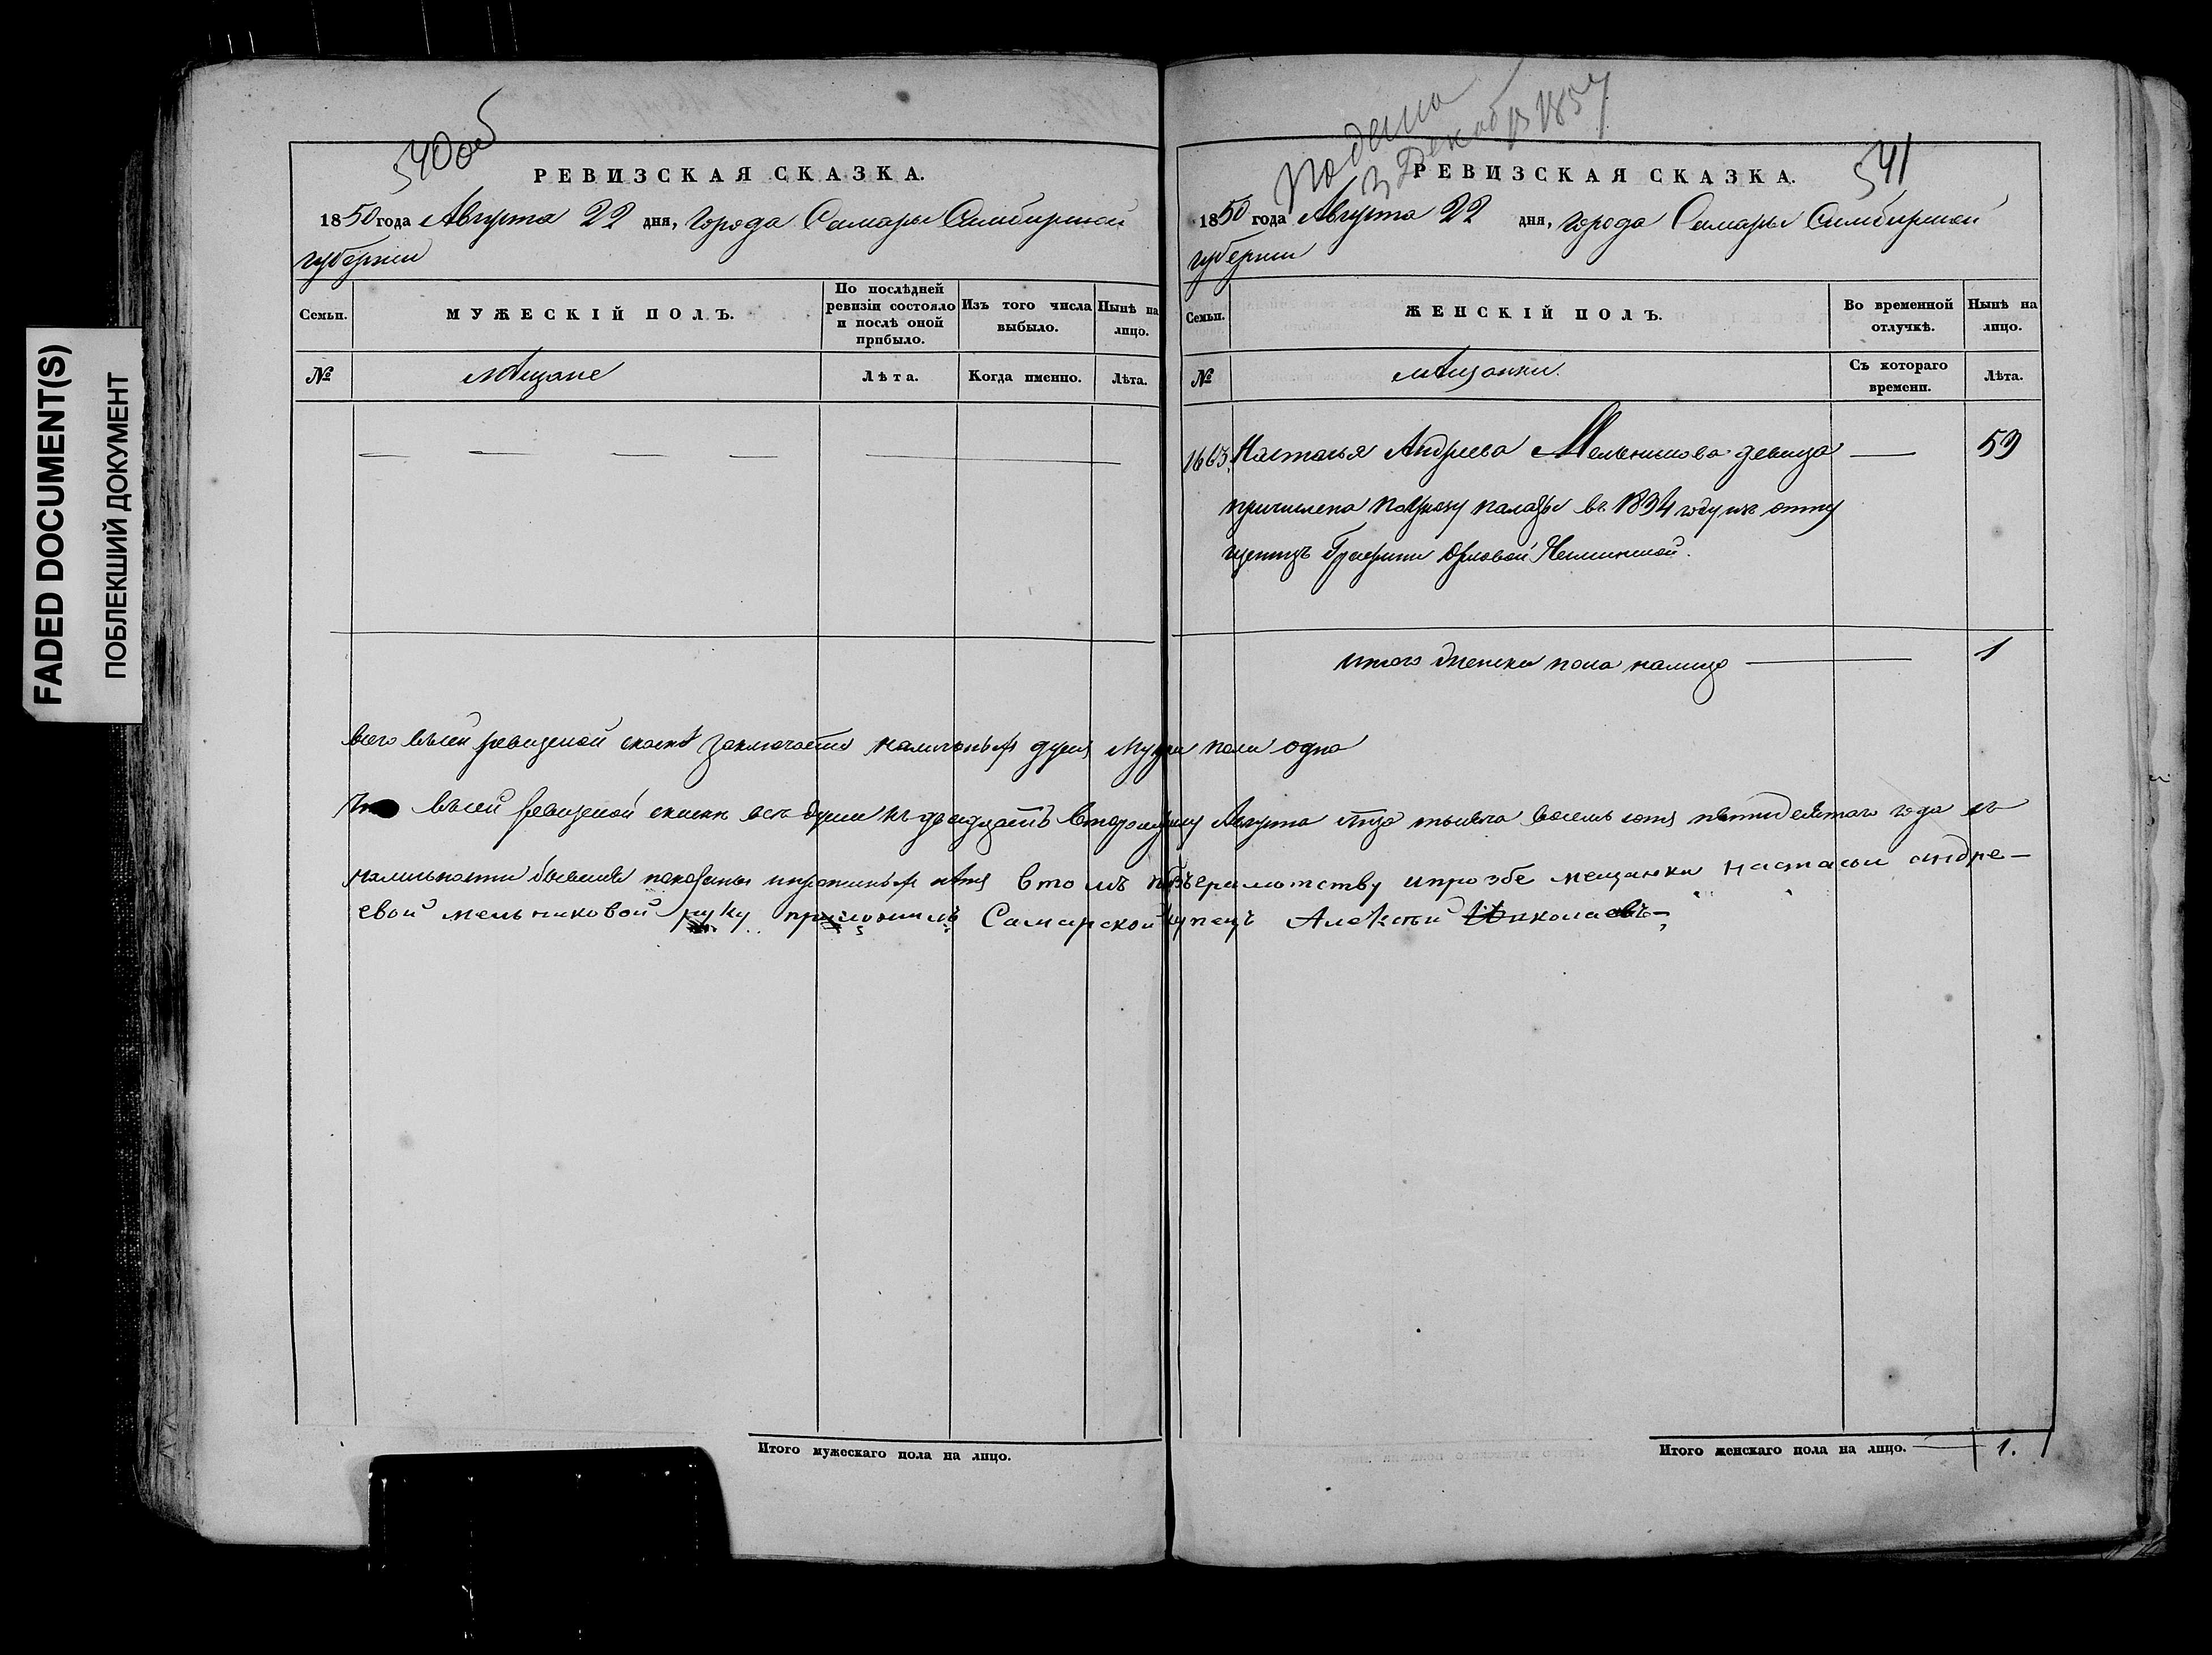 FADED DOCUMENT(S)
ПОБЛЕКШИЙ ДОКУМЕНТ
540об
РЕВИЗСКАЯ СКАЗКА.
1850 года Августа 22 дня, города Самары Симбирской
губернии
Семьи.
МУЖЕСКІЙ ПОЛЪ.
По послѣдней
ревизіи состояло
и послѣ оной
прибыло.
Изъ того числа
выбыло.
Нынѣ на
лицо.
№
мѣщане
Лѣта.
Когда именно.
Лѣта.
подана
3 Декабр 1857
541
РЕВИЗСКАЯ СКАЗКА.
1850 года Августа 22 дня, города Самары Симбирской
губернии
Семьи.
ЖЕНСКІЙ ПОЛЪ.
Во временной
отлучкѣ.
Нынѣ на
лицо.
№
мѣщанки.
Съ котораго
времени.
Лѣта.
1663. Настасья Андреева Мельникова девица — 59
причислена по указу палаты въ 1834 году изъ отпу
щеницъ Графини Орловой Чесминской.
итого женска пола налицо — 1
всего въ сей ревизской скаскѣ заключается наличныхъ душъ пола одна
въ сей ревизской скаски все души къ двадцать второму числу Августа тысяча восемь сотъ пятидесятаго года въ
наличности бывшия показаны лѣтъ втомъ побезграмотству ипрозбе мещанки настасьи андре-
евой мельниковой руку приложилъ Самарской купецъ Алексѣй Николаевъ
Итого мужескаго пола на лицо.
Итого женскаго пола на лицо. — 1.